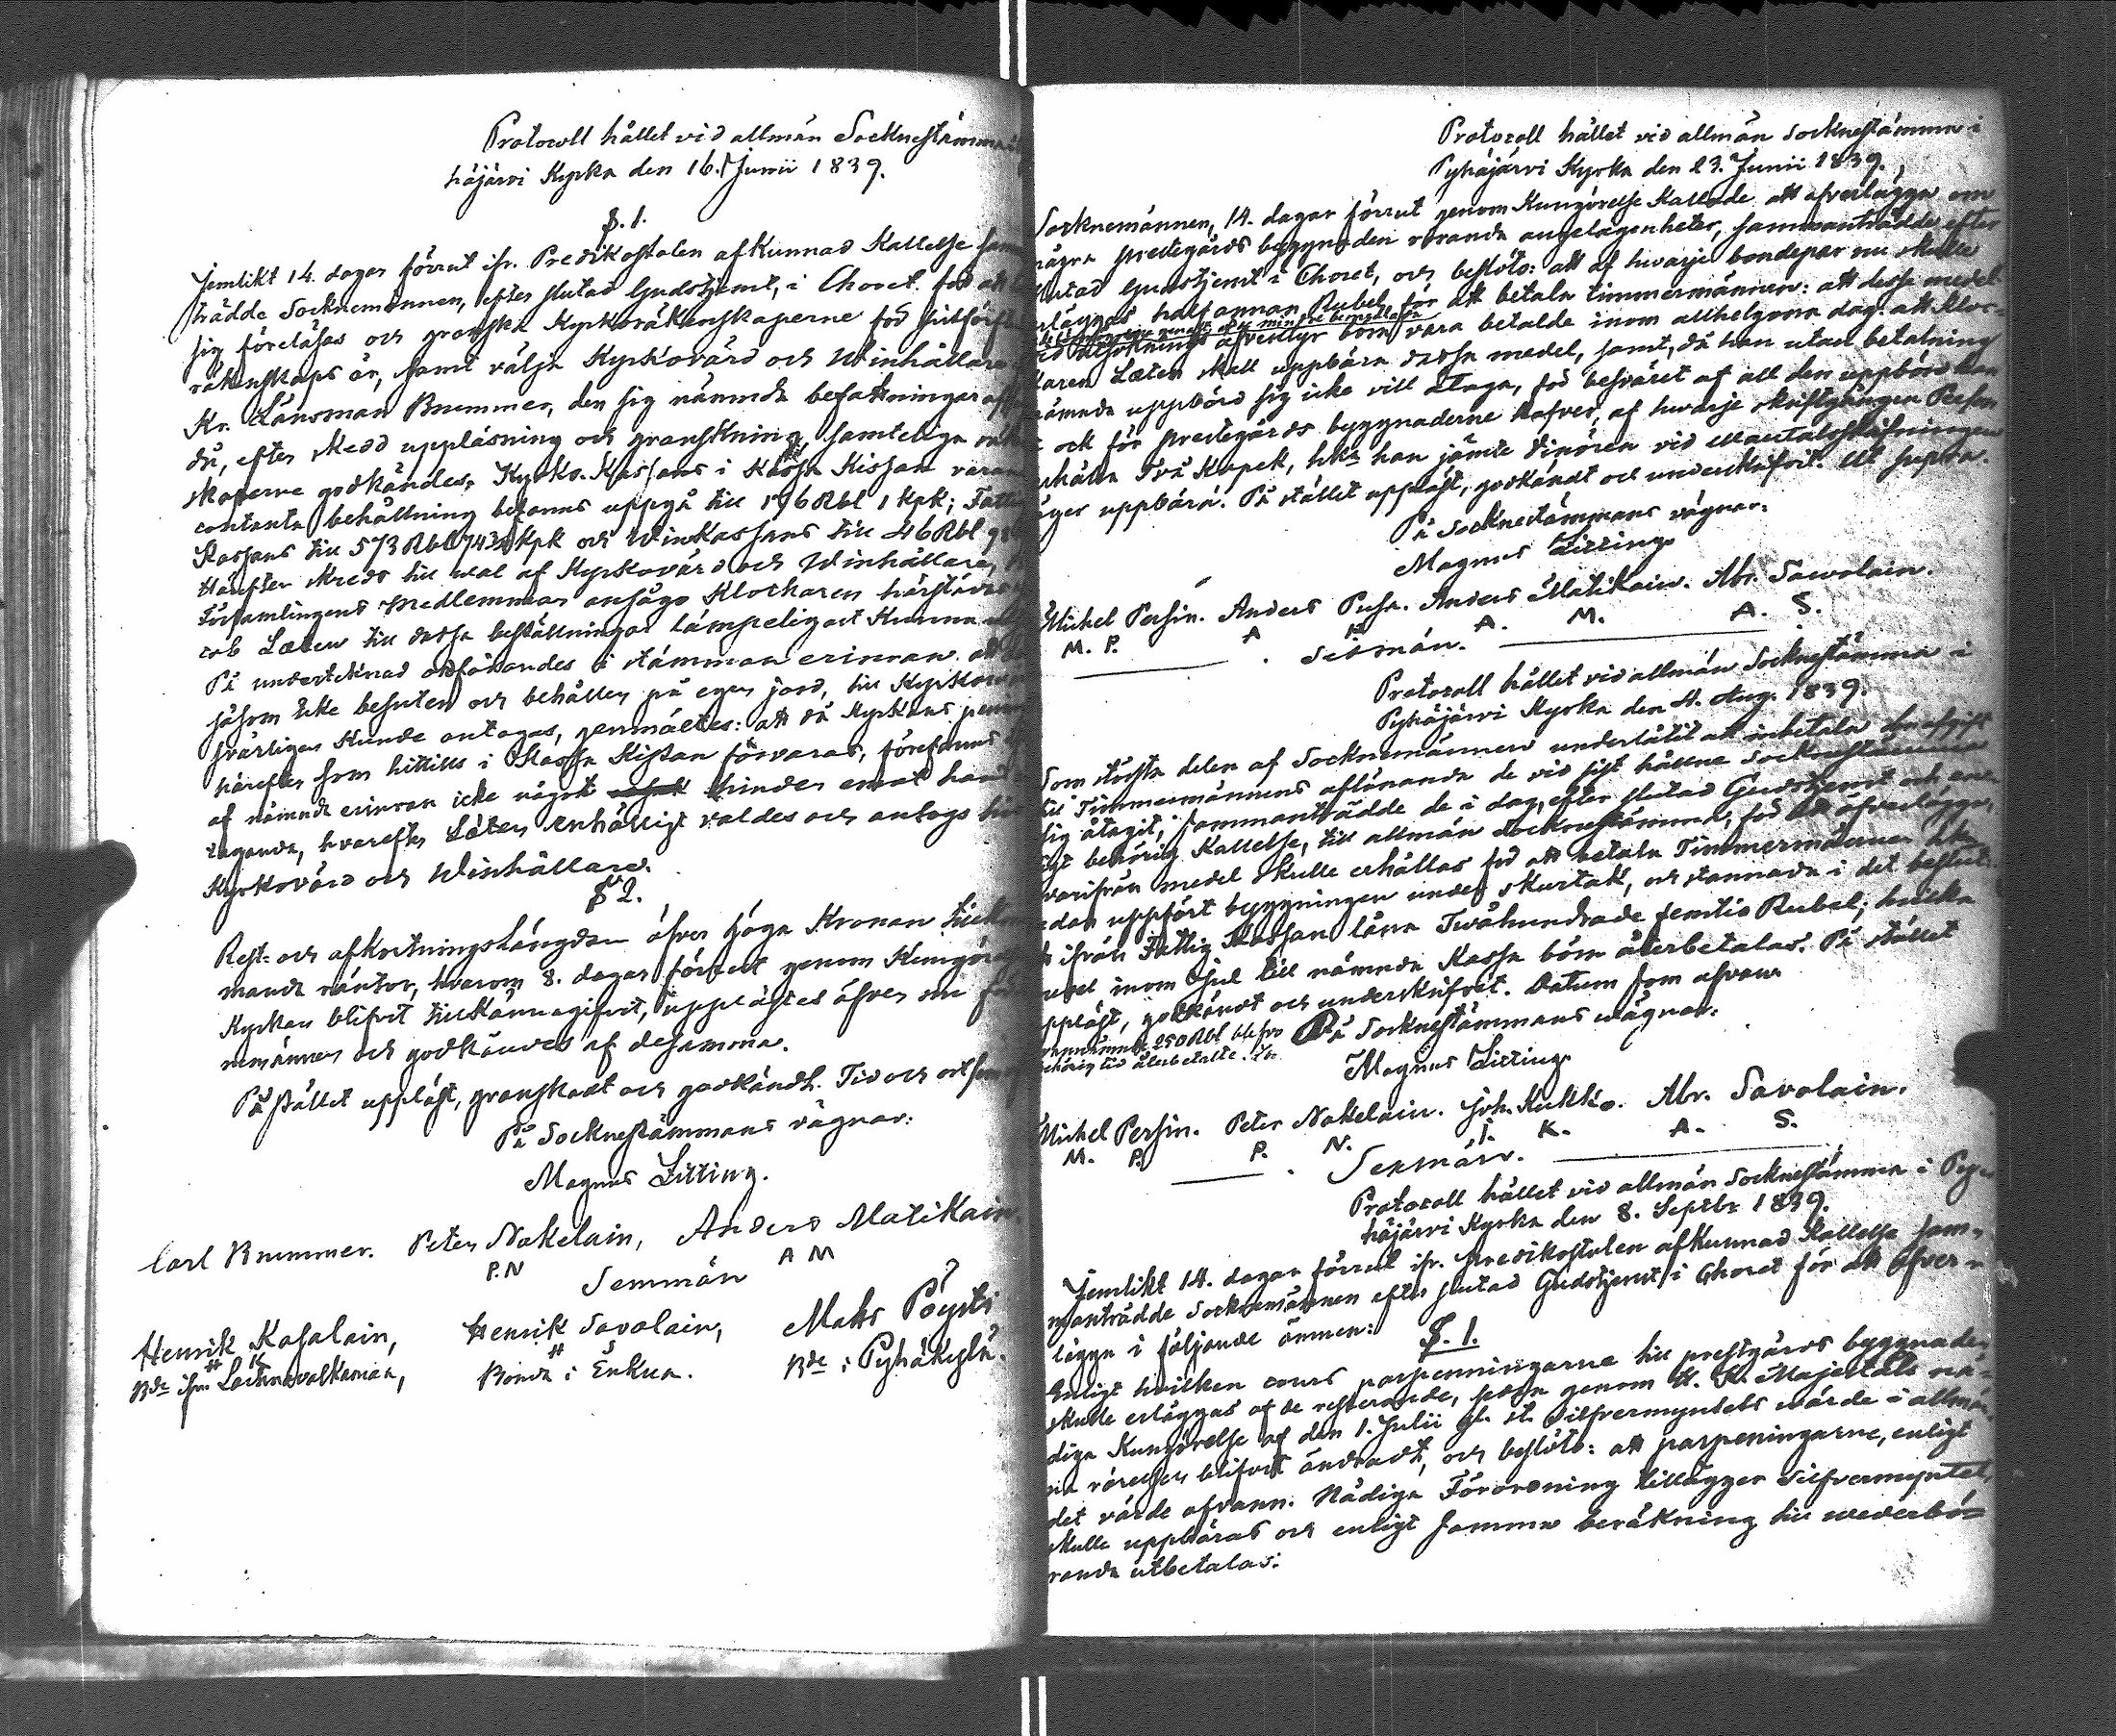 Protocoll hållet vid allmän Socknestämma i
häjärvi Kyrka den 16. Junii 1839.
§. 1.
Jemlikt 14. dagar förrut ifr. Predikostolen afkunnad Kallelse sam
trädde Socknemännen, efter slutad Gudstjenst, i Choret för att
sig föreläsas och granska Kyrkoräkenskaperne för
räkenskaps år, samt välja Kyrkovärd och Winhållare
Kr. Länsman Brummer, den sig nämnda befattningar
då, efter skedd uppläsning och granskning, samteliga
skaperne godkändes. Kyrko-Kassans i Kassa Kistan
contanta behållning befanns uppgå till 196 Rbl 1 kpk;
Kassans till 573 Rbl kpk och WinKassans till 46 Rbl
Härefter skreds till wal af Kyrkovärd och Winhållare,
Församlingens medlemmar ansågo Klockaren härstädes
cob Læten till dessa beställningar lämpeligast kunna
På undertecknad ordförandes i stämman erinran att
såsom icke besuten och behållen på egen jord, till Kyrkovärd
svårligen kunde antagas, genmältes: att då Kyrkans
härefter som hittills i Kassa Kistan förvaras, förefanns
af nämnde erinran icke något hinder emot hans
tagande, hvarefter Läten enhälligt valdes och antogs till
Kyrkovärd och Winhållare.
§ 2.
Rest- och afkortningslängden öfver höga Kronan
mande räntor, hvarom 8. dagar förrut genom Kungörelse
Kyrkan blifvit tillkännagifvit, upplästes öfver
nemännen och godkändes af desamma.
På stället uppläst, granskadt och godkändt. Tid och ort
På Socknestämmans vägnar:
Magnus Zitting.
Carl Brummer. Peter Nokelain, Anders Matikain.
P. N A M
Semmän
Henrik Kasalain, Henrik Savolain, Mats Pöysti
H K H S
Bde ifrn , Bonde i Enkua. Bde i Pyhäkylä.
Protocoll hållet vid allmän Socknestämma i
Pyhäjärvi Kyrka den 23. Junii 1839.
Socknemännen, 14. dagar förrut genom Kungörelse Kallade att öfverlägga om
några prestegårds byggnaden rörande angelägenheter, sammanträdde efter
slutad Gudstjenst i Choret, och beslöto: att af hwarje bondepar nu skulle
erläggas halfannan Rubel för att betala timmermännen: att desse medel
vid äfventyr böra vara betalde inom allhelgona dag: att Kloc-
karen Læten skall uppbära dessa medel, samt, då han utan betalning
nämnde uppbörd sig icke vill åtaga, för besväret af all den uppbörd han
ock för prestegårds byggnaderne hafver, af hwarje skriftgången Person
erhålla Två Kopek, hka han jämte dinören vid Mantalsskrifningen
äger uppbära. På stället uppläst, godkändt och underskrifvit. Ut supra.
På Socknestämmans vägnar:
Magnus Zitting
Michel Persin. Anders Pusa. Anders Matikain. Abr. Sawolain.
M. P. A P. A. M. A. S.
Sexmän.
Protocoll hållet vid allmän Socknestämma i
Pyhäjärvi Kyrka den 4. Aug. 1839.
Som största delen af Socknemännen underlåtit att inbetala
till Timmermännens aflönande de vid sist hållne Socknestämma
sig åtagit, sammanträdde de i dag, efter slutad Gudstjenst och
ligt behörig Kallelse, till allmän Socknestämma, för att öfverlägga,
hvarifrån medel skulle erhållas för att betala Timmermännen
redan uppfört byggningen under skurtak, och stannade i det beslut:
att ifrån Fattig Kassan låna Twåhundrade femtio Rubel; hvilka
medel inom Jul till nämnde Kassa böra återbetalas. På stället
uppläst, godkändt och underskrifvit. Datum som ofvan
250 Rbl blefvo På Socknestämmans wägnar:
behörig tid återbetalte.
Magnus Zitting
Michel Persin. Peter Nokelain. Joh. Kukko. Abr. Savolain.
M. P. P. N. J. K. A. S.
Sexmän.
Protocoll hållet vid allmän Socknestämma i Py-
häjärvi Kyrka den 8. Septbr 1839.
Jemlikt 14. dagar förrut ifr. Predikostolen afkunnad Kallelse sam-
manträdde Socknemännen efter slutad Gudstjenst i Choret för att öfver-
lägga i följande ämnen:
§. 1.
Enligt hvilken cours parpenningarne till prestgårds byggnaden
skulle erläggas af de resterande, sedan genom H. K. Majestäts nå-
diga Kungörelse af den 1. Julii gl. st. silfvermyntets wärde i allmän-
na rörelsen blifvit ändradt, och beslöto: att parpeningarne, enligt
det värde ofvann. Nådiga Förordning tillägger silfvermyntet,
skulle uppbäras och enligt samma beräkning till wederbö-
rande utbetalas.